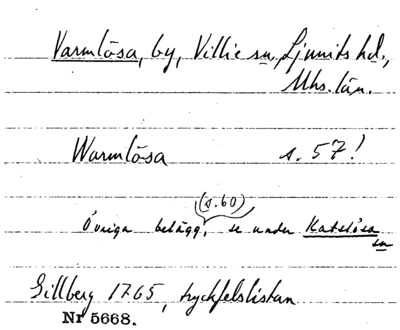 Varmlösa, by, Villie sn, Ljunits hd.,
Mhs. län.
Warmlösa s. 57!
(s. 60)
Övriga belägg, se under Katslösa
sn
Gillberg 1765, tryckfelslistan
Nr 5668.